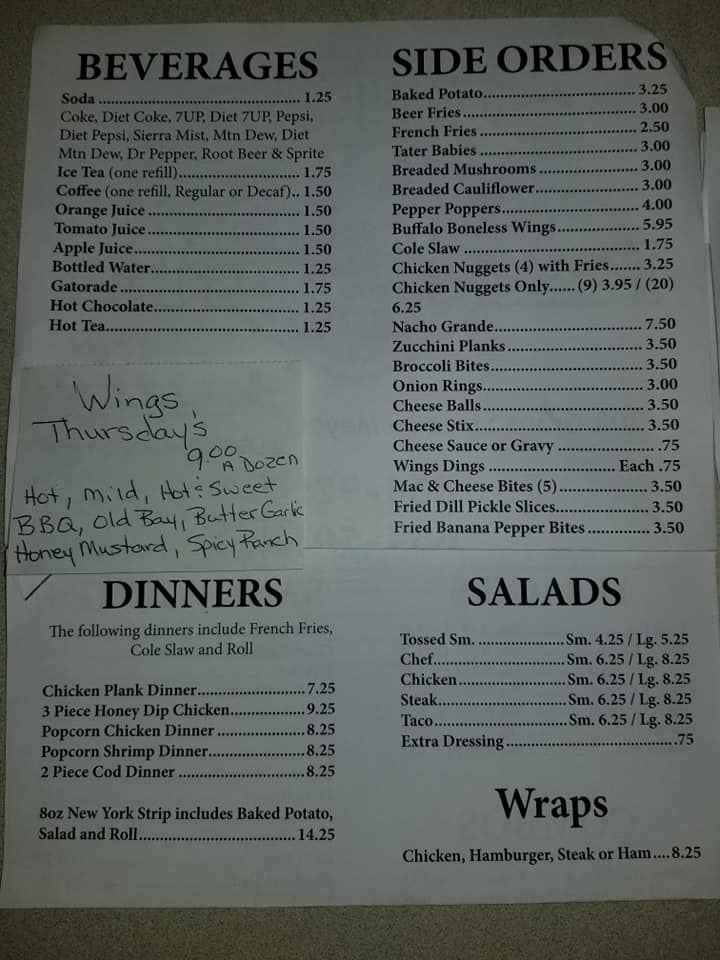 BEVERAGES
Soda ................................................ 1.25
Coke, Diet Coke, 7UP, Diet 7UP, Pepsi,
Diet Pepsi, Sierra Mist, Mtn Dew, Diet
Mtn Dew, Dr Pepper, Root Beer & Sprite
Ice Tea (one refill)............................ 1.75
Coffee (one refill, Regular or Decaf).. 1.50
Orange Juice ................................... 1.50
Tomato Juice ................................... 1.50
Apple Juice...................................... 1.50
Bottled Water.................................. 1.25
Gatorade ......................................... 1.75
Hot Chocolate................................. 1.25
Hot Tea............................................ 1.25
Wings
Thursday's
9.00
A Dozen
Hot, mild, Hot & Sweet
BBQ, Old Bay, Butter Garlic
Honey Mustard, Spicy Ranch
DINNERS
The following dinners include French Fries,
Cole Slaw and Roll
Chicken Plank Dinner.........................7.25
3 Piece Honey Dip Chicken.................9.25
Popcorn Chicken Dinner ....................8.25
Popcorn Shrimp Dinner......................8.25
2 Piece Cod Dinner .............................8.25
8oz New York Strip includes Baked Potato,
Salad and Roll.................................... 14.25
SIDE ORDERS
Baked Potato..................................... 3.25
Beer Fries .......................................... 3.00
French Fries ...................................... 2.50
Tater Babies ...................................... 3.00
Breaded Mushrooms ........................ 3.00
Breaded Cauliflower......................... 3.00
Pepper Poppers................................. 4.00
Buffalo Boneless Wings.................... 5.95
Cole Slaw .......................................... 1.75
Chicken Nuggets (4) with Fries....... 3.25
Chicken Nuggets Only...... (9) 3.95 / (20)
6.25
Nacho Grande................................... 7.50
Zucchini Planks ................................ 3.50
Broccoli Bites.................................... 3.50
Onion Rings...................................... 3.00
Cheese Balls ...................................... 3.50
Cheese Stix........................................ 3.50
Cheese Sauce or Gravy ........................ .75
Wings Dings ............................. Each .75
Mac & Cheese Bites (5) .................... 3.50
Fried Dill Pickle Slices...................... 3.50
Fried Banana Pepper Bites ............... 3.50
SALADS
Tossed Sm. .....................Sm. 4.25 / Lg. 5.25
Chef................................Sm. 6.25 / Lg. 8.25
Chicken..........................Sm. 6.25 / Lg. 8.25
Steak...............................Sm. 6.25 / Lg. 8.25
Taco.................................Sm. 6.25 / Lg. 8.25
Extra Dressing.........................................75
Wraps
Chicken, Hamburger, Steak or Ham....8.25